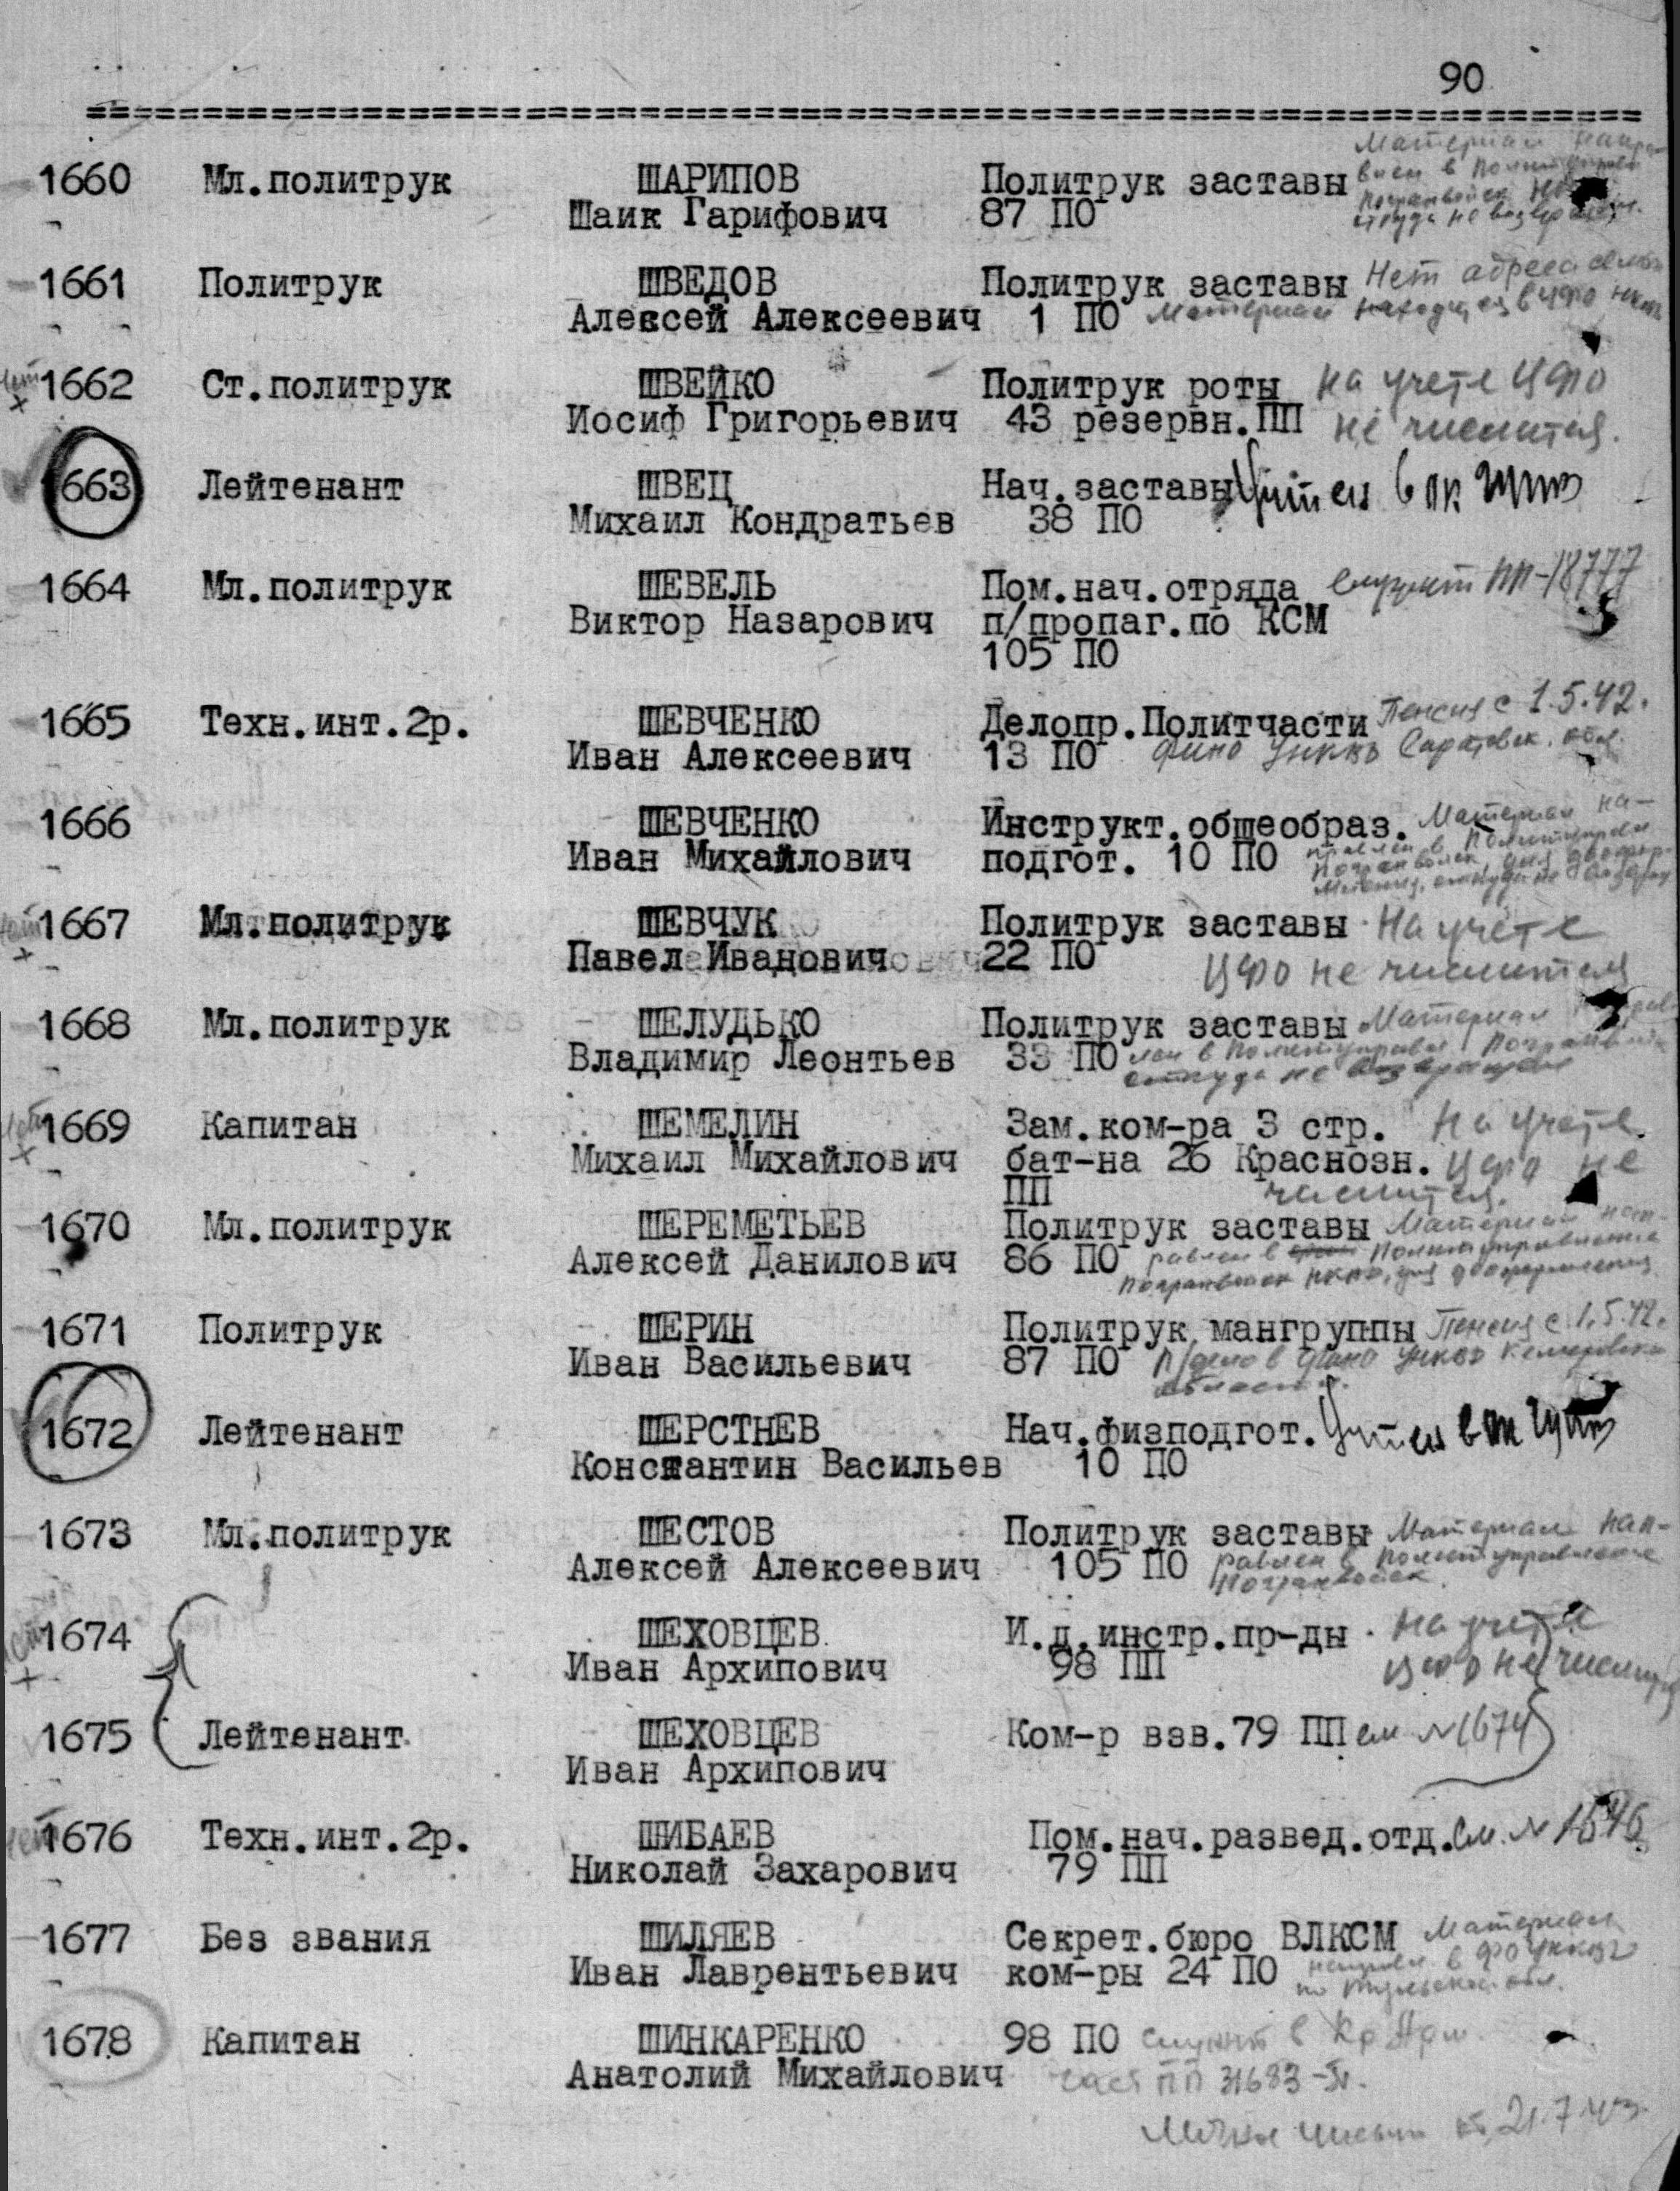 90
1660 Мл.политрук ШАРИПОВ Политрук заставы
Шаик Гарифович 87 ПО
Материал направлен в Политуправл. погранвойск откуда не возвращен.
1661 Политрук ШВЕДОВ Политрук заставы Нет адреса семьи
Алексей Алексеевич 1 ПО Материал находится в ЦФО
1662 Ст.политрук ШВЕЙКО Политрук роты На учете ЦФО
Иосиф Григорьевич 43 резервн.ПП не числится.
1663 Лейтенант ШВЕЦ Нач.заставы
Михаил Кондратьев 38 ПО
1664 Мл.политрук ШЕВЕЛЬ Пом.нач.отряда служит ПП-18777
Виктор Назарович п/пропаг.по КСМ
105 ПО
1665 Техн.инт.2р. ШЕВЧЕНКО Делопр.Политчасти Пенсия с 1.5.42.
Иван Алексеевич 13 ПО ФИНО УНКВД Саратовск. обл.
1666 ШЕВЧЕНКО Инструкт.общеобраз. Материал на-
Иван Михайлович подгот. 10 ПО правлен в Политуправл
погранвойск для дооформ-
ления, откуда не возвращ
1667 Мл.политрук ШЕВЧУК Политрук заставы На учете
Павел Иванович 22 ПО ЦФО не числится
1668 Мл.политрук ШЕЛУДЬКО Политрук заставы Материал
Владимир Леонтьев 33 ПО лен в Политуправл. Погранвойск
откуда не возвращен
1669 Капитан ШЕМЕЛИН Зам.ком-ра 3 стр. На учете
Михаил Михайлович бат-на 26 Краснозн. ЦФО не
ПП числится.
1670 Мл.политрук ШЕРЕМЕТЬЕВ Политрук заставы Материал нап-
Алексей Данилович 86 ПО равлен в Политуправление
Погранвойск НКВД, для дооформления
1671 Политрук ШЕРИН Политрук мангруппы Пенсия с 1.5.42.
Иван Васильевич 87 ПО П/дело в ФИНО УНКВД Кемеровской
области.
1672 Лейтенант ШЕРСТНЕВ Нач.физподгот.
Константин Васильев 10 ПО
1673 Мл.политрук ШЕСТОВ Политрук заставы Материал нап-
Алексей Алексеевич 105 ПО равлен в Политуправление
Погранвойск.
1674 ШЕХОВЦЕВ И.д.инстр.пр-ды На учете
Иван Архипович 98 ПП ЦФО не числится
1675 Лейтенант ШЕХОВЦЕВ Ком-р взв.79 ПП см №1674
Иван Архипович
1676 Техн.инт.2р. ШИБАЕВ Пом.нач.развед.отд. см. №
Николай Захарович 79 ПП
1677 Без звания ШИЛЯЕВ Секрет.бюро ВЛКСМ Материал
Иван Лаврентьевич ком-ры 24 ПО направл. в ФО УНКВД
по Тульской обл.
1678 Капитан ШИНКАРЕНКО 98 ПО служит в Кр Арм.
Анатолий Михайлович ПП 31683
21.7.43